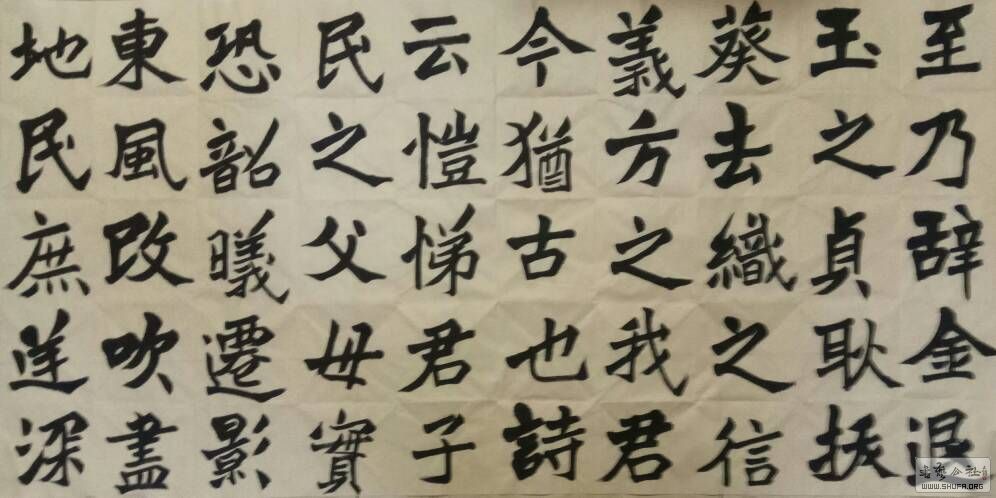 至乃辞金退
玉之貞耿拔
葵去織之信
義方之我君
今猶古也詩
云愷悌君子
民之父母實
恐韶曦遷影
東風改吹盡
地民庶逆深
WWW.SHUFA.ORG